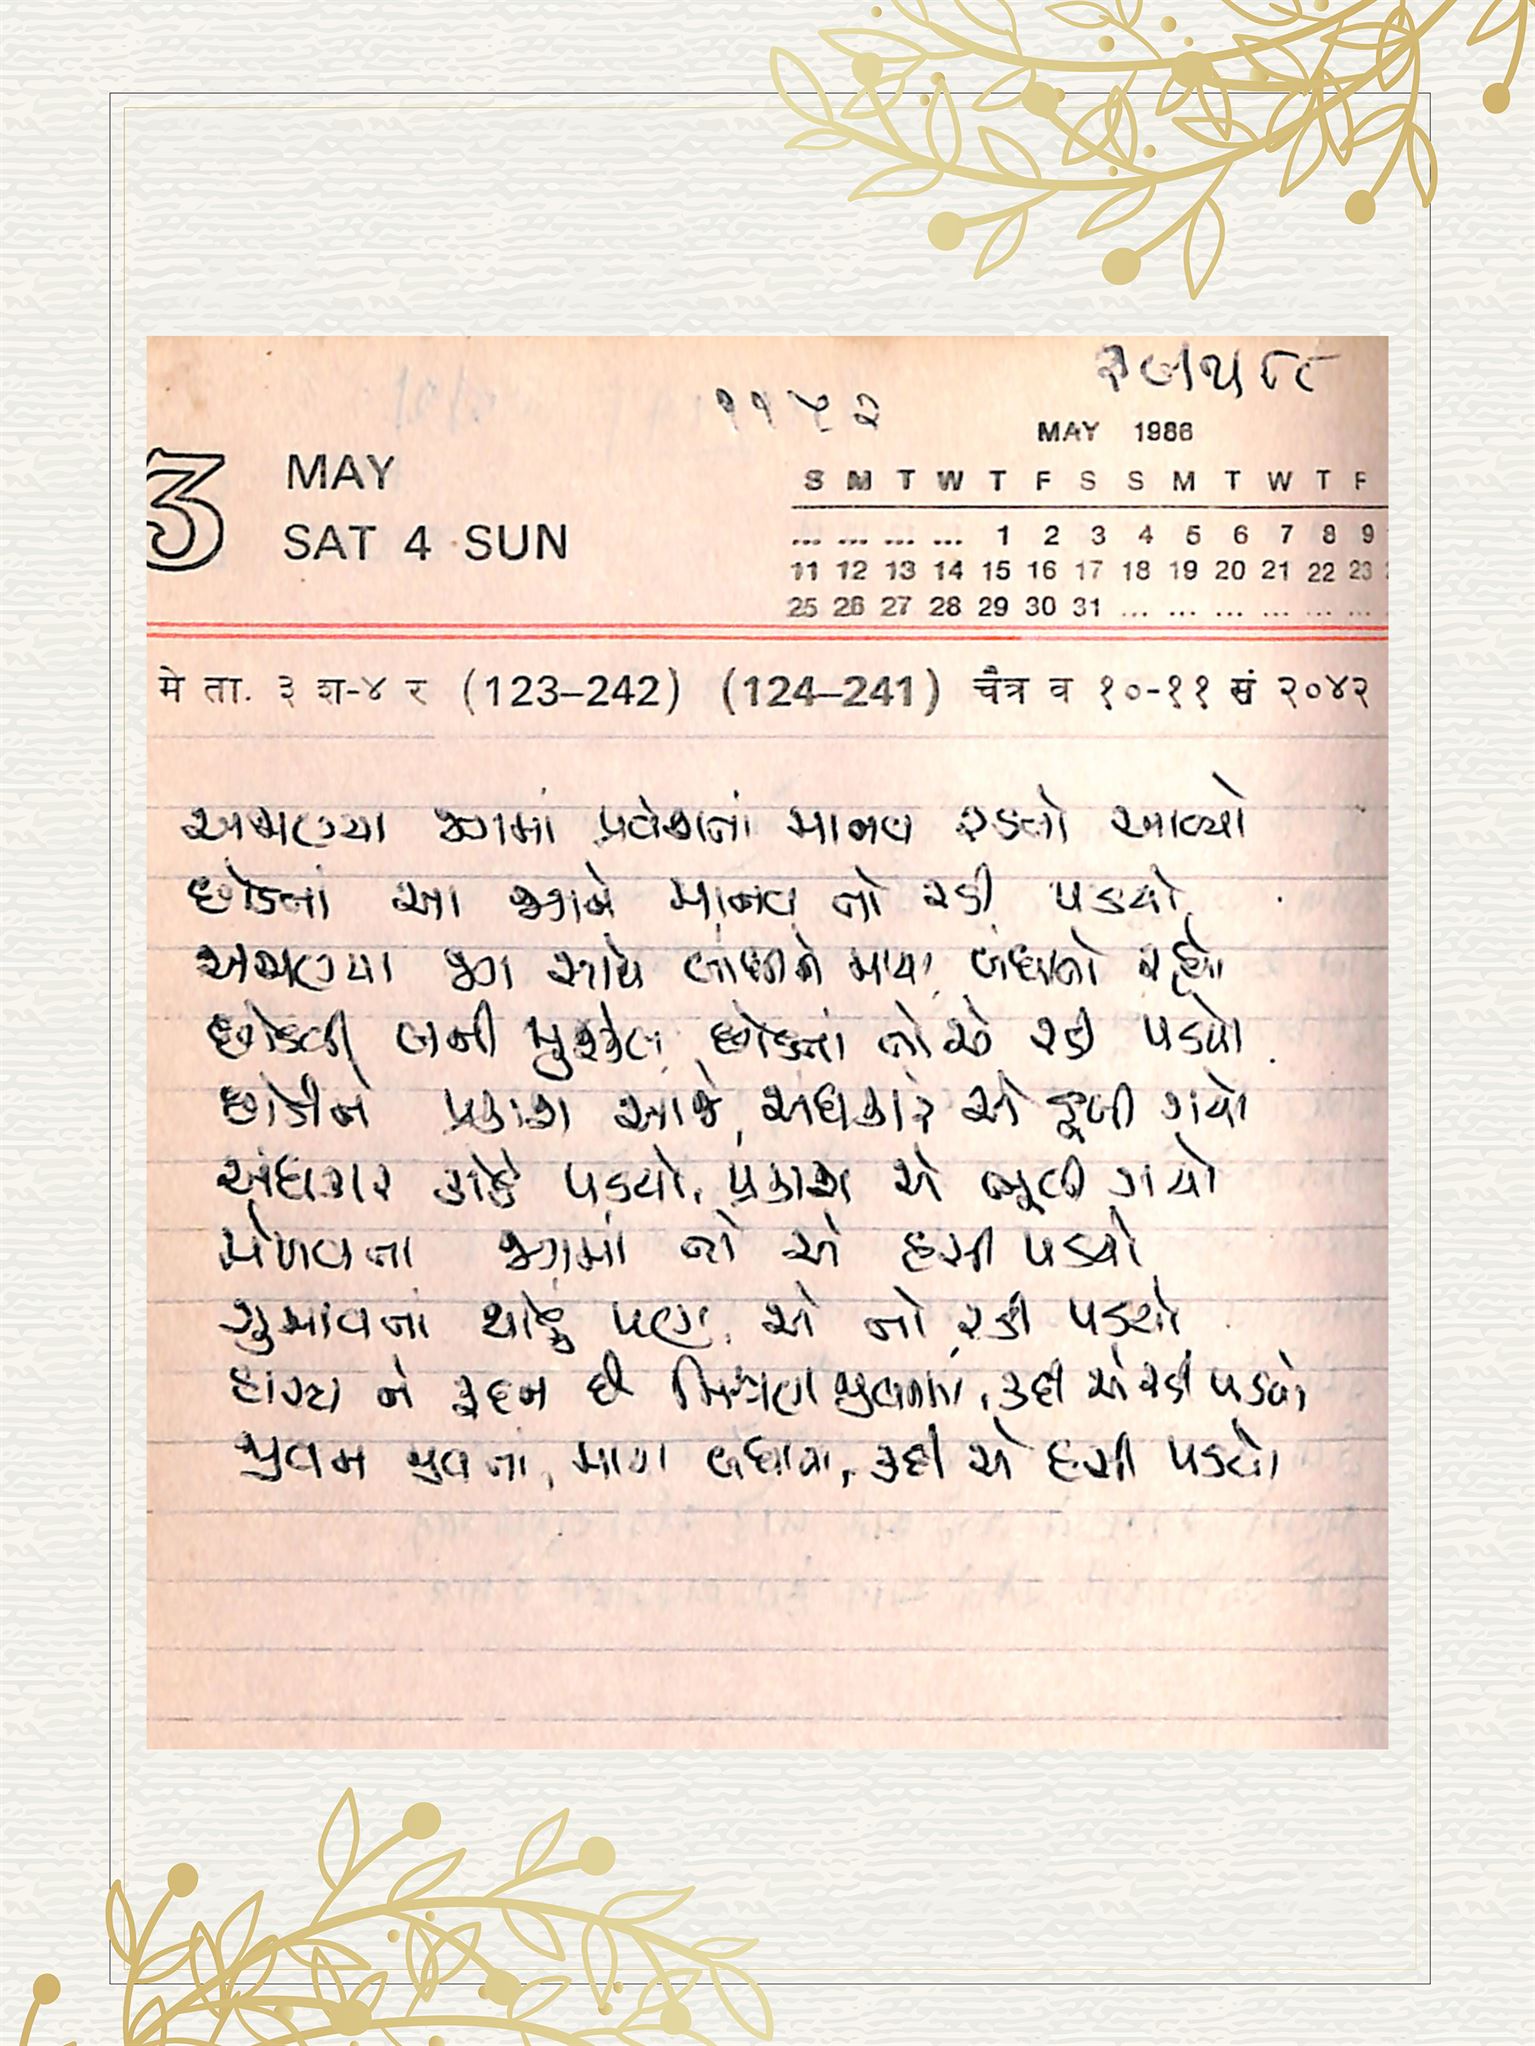 ૧૧૫૨
MAY 1986
3 MAY
SAT 4 SUN
S M T W T F S S M T W T F
... ... ... ... 1 2 3 4 5 6 7 8 9
11 12 13 14 15 16 17 18 19 20 21 22 23
25 26 27 28 29 30 31 ... ... ... ... ... ...
मे ता. ३ श-४ र (123–242) (124–241) चैत्र व १०-११ सं २०४२
અજાણ્યા જગમાં પ્રવેશતાં માનવ રડતો આવ્યો
છોડતાં આ જગને માનવ તો રડી પડયો
અજાણ્યા જગ સાથે બાંધીને માયા, બંધાતો રહ્યો
છોડવી બની મુશ્કેલ, છોડતાં તો એ રડી પડયો.
છોડીને પ્રકાશ આજે, અંધકારે એ ડૂબી ગયો
અંધકાર કોઠે પડયો, પ્રકાશ એ ભૂલી ગયો
મેળવતા જગમાં તો એ હસી પડયો
ગુમાવતાં થોડું પણ, એ તો રડી પડયો
હાસ્ય ને રૂદન છે મિશ્રણ જીવનમાં, કદી એ રડી પડયો
જીવન જીવતાં, માયા બંધાયા, કદી એ હસી પડયો